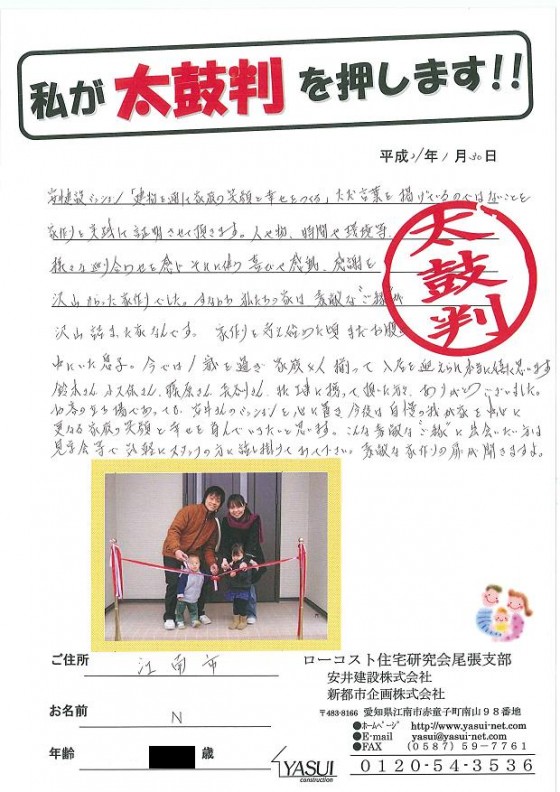 私が 太鼓判 を押します!!
平成21年1月30日
安井建設ミッション「建物を通じ家族の笑顔と幸せをつくる」ただ言葉を掲げているのではないことを
家作りを実践し証明させて頂きます。人や物、時間や環境等、
様々な巡り合わせを感じ それに伴う喜びや感動、感謝を
沢山 家作りでした。すなわち 私たちの家は 素敵な"ご縁"が
沢山詰まった家なんです。 家作りを考え始めた頃 まだお腹の
中にいた息子。今では1歳を過ぎ 家族4人揃って入居を迎えられ
鈴木さん、 藤原さん、 携って頂いた方々、ありがとうございました。
安井さんのミッションを心に置き 今後は自慢の我が家を中心に
更なる家族の笑顔と幸せを育んでいきたいと思います。こんな素敵な"ご縁"に出会いたい方は
見学会等で気軽にスタッフの方に話し掛けてみて下さい。素敵な家作りの扉が開きますよ。
太鼓判
ご住所 江南市
お名前 N
年齢 歳
ローコスト住宅研究会尾張支部
安井建設株式会社
新都市企画株式会社
〒483-8166 愛知県江南市赤童子町南山98番地
●ホームページ http://www.yasui-net.com
●E-mail yasui@yasui-net.com
●FAX (0587)59-7761
0120-54-3536
YASUI
construction